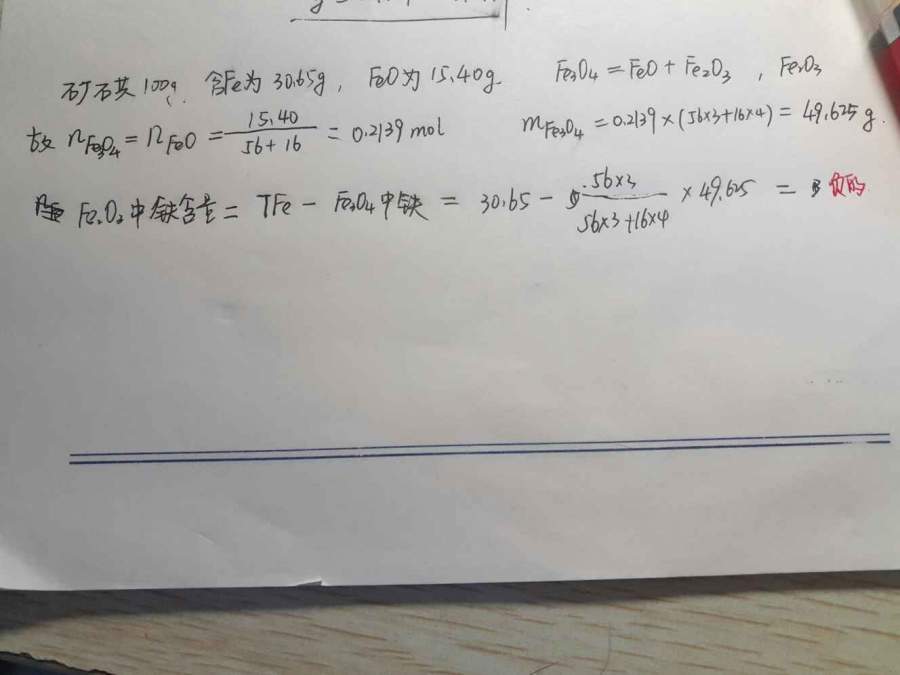 矿石共100g, 含Fe为30.65g, FeO为15.40g. Fe₃O₄=FeO+Fe₂O₃, Fe₂O₃
故 nFe₃O₄=nFeO=15.40/(56+16)=0.2139mol mFe₃O₄=0.2139×(56×3+16×4)=49.625g.
Fe₂O₃中铁含量=TFe-Fe₃O₄中铁=30.65-56×3/(56×3+16×4)×49.625= 负的